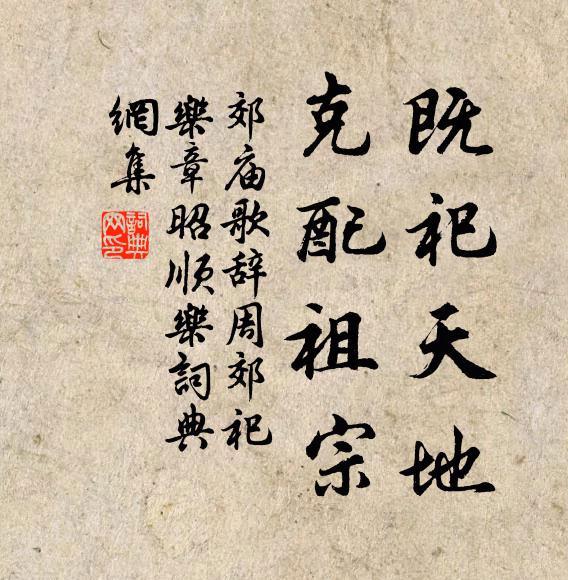 既祀天地
克配祖宗
郊庙歌辞周郊祀
樂章昭順樂詞典
網集
詞典
网印